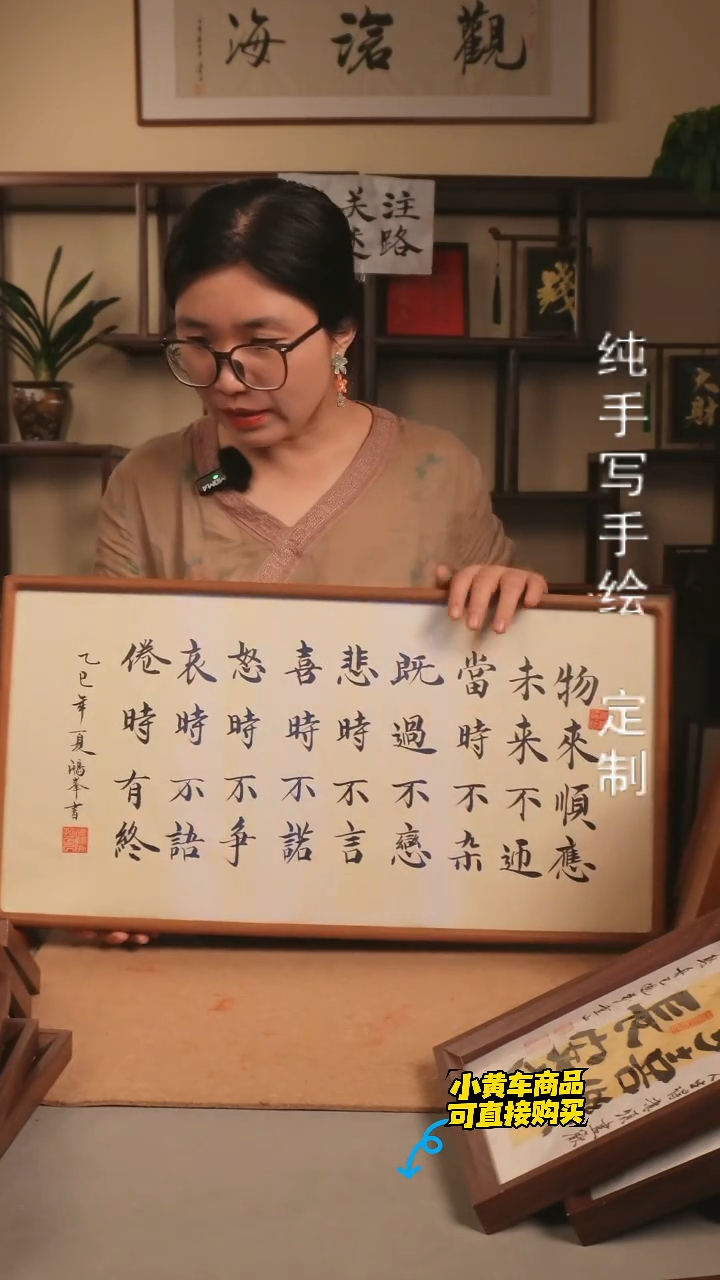 觀滄海
关注
路
纯手写手绘
定制
物來順應
未来不迎
當時不杂
既過不戀
悲時不言
喜時不諾
怒時不争
哀時不語
倦時有終
乙巳年夏鴻峯書
小黄车商品
可直接购买